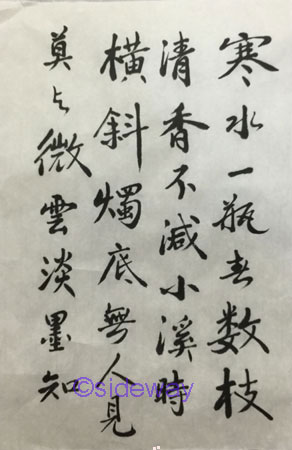 寒水一瓶春数枝
清香不減小溪時
橫斜燭底無人見
莫与微雲淡墨知
©sideway